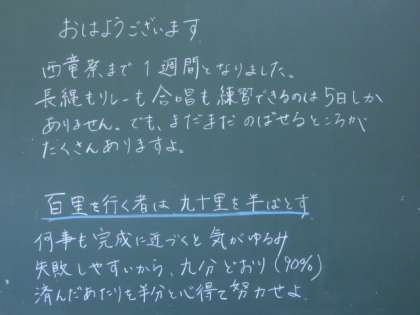 おはようございます
西竜祭まで1週間となりました。
長縄もリレーも合唱も練習できるのは5日しか
ありません。でも、まだまだのばせるところが
たくさんありますよ。
百里を行く者は九十里を半ばとす
何事も完成に近づくと気がゆるみ
失敗しやすいから、九分どおり(90%)
済んだあたりを半分と心得て努力せよ